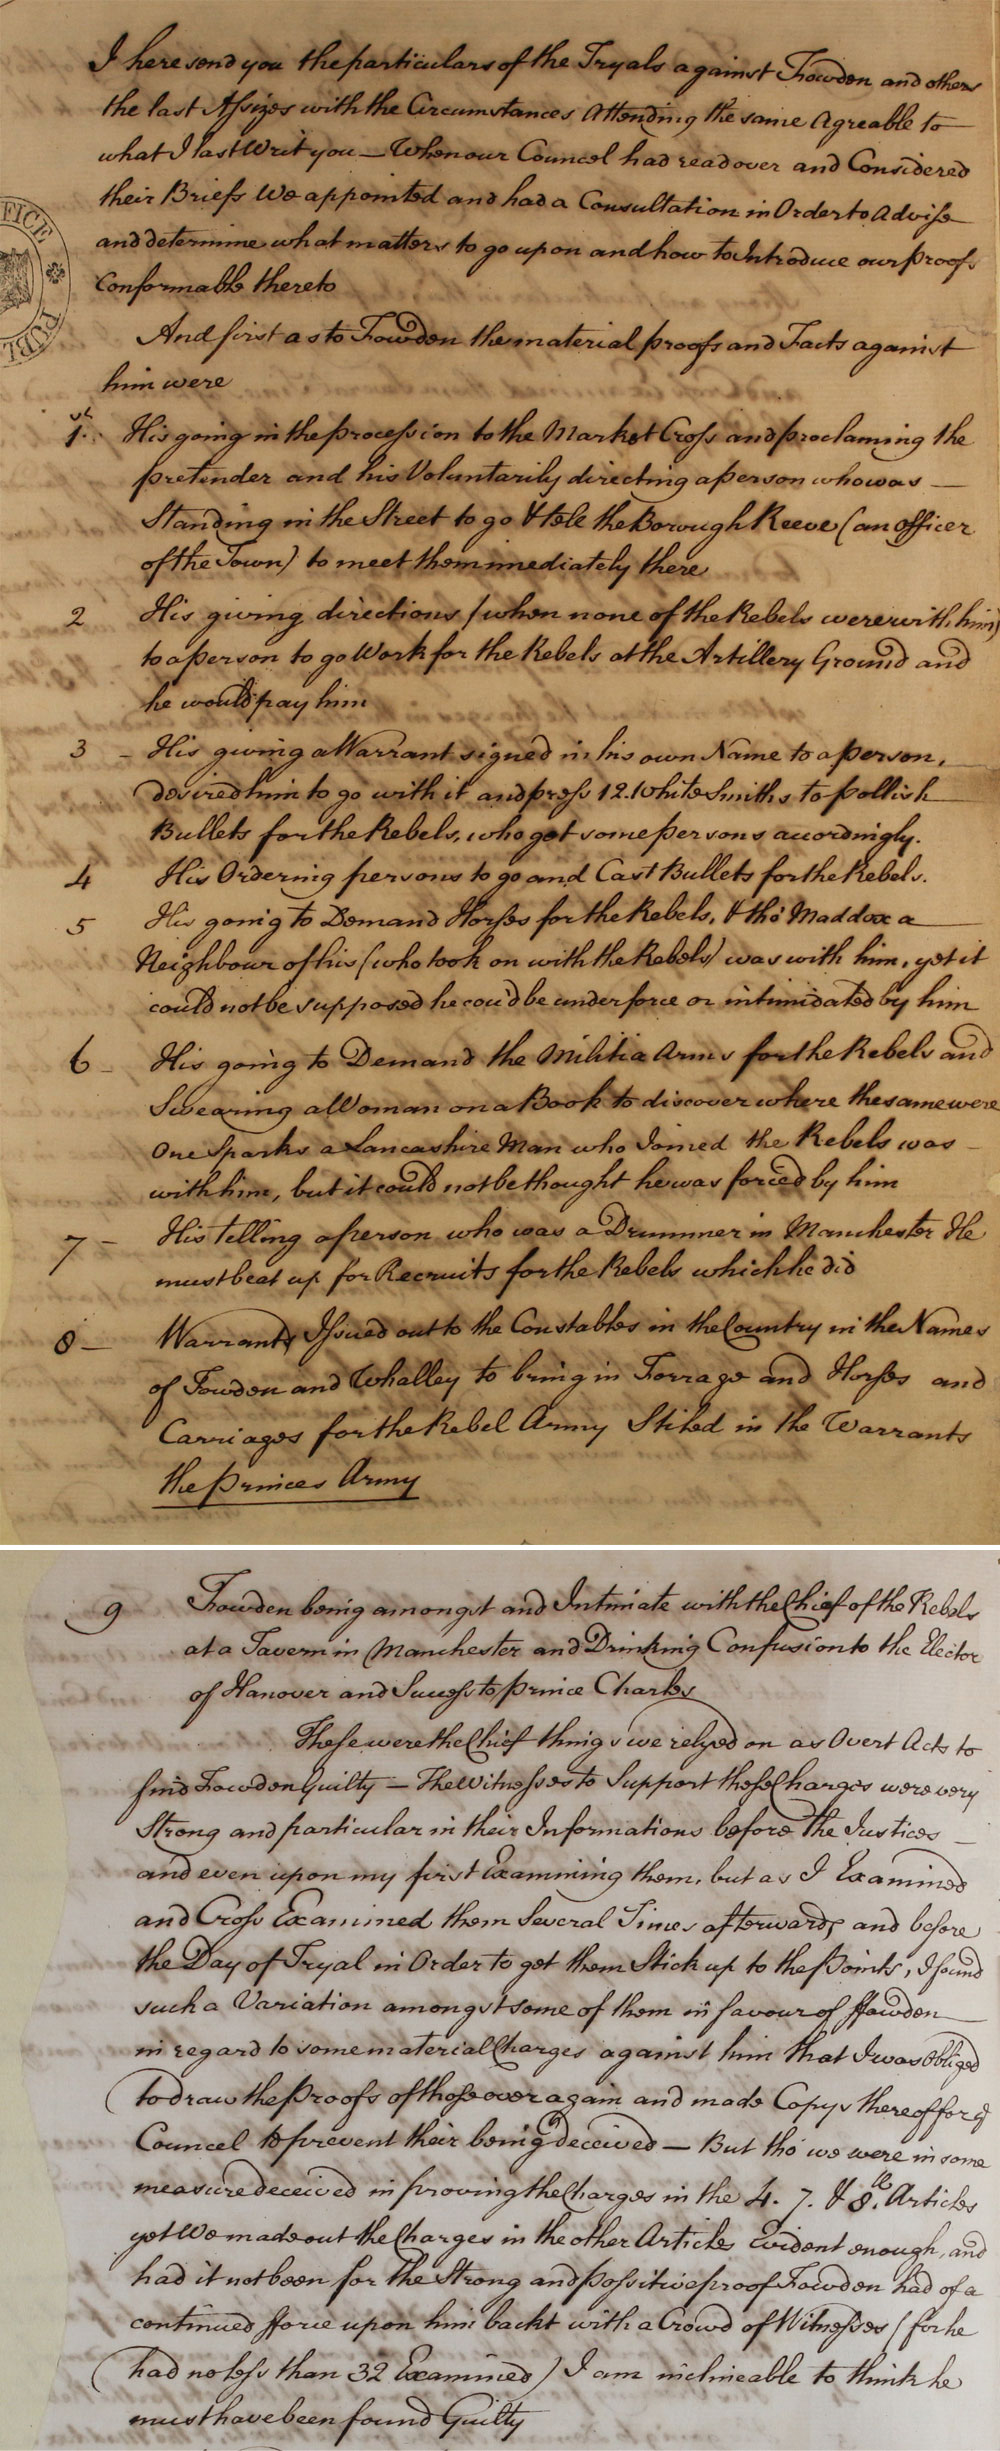 I here send you the particulars of the Tryals against Fowden and others
the last Assizes with the Circumstances Attending the same Agreable to
what I last Writ you – When our Councel had read over and Considered
their Briefs We appointed and had a Consultation in Order to Advise
and determine what matters to go upon and how to Introduce our proofs
Conformable thereto
And first as to Fowden the material proofs and Facts against
him were
1st. His going in the procession to the Market Cross and proclaming the
pretender and his Voluntarily directing a person who was –
Standing in the Street to go & tele the Borough Reeve (an officer
of the Town) to meet them imediately there
2 His giving directions (when none of the Rebels were with him)
to a person to go Work for the Rebels at the Artillery Ground and
he would pay him
3 – His giving a Warrant signed in his own Name to a person,
desired him to go with it and press 12. White Smiths to pollish
Bullets for the Rebels, who got some persons accordingly.
4 His Ordering persons to go and Cast Bullets for the Rebels.
5 His going to Demand Horses for the Rebels, & tho' Maddox a
Neighbour of his (who took on with the Rebels) was with him, yet it
could not be supposed he cou'd be under force or intimidated by him
6 – His going to Demand the Militia Arms for the Rebels and
Swearing a Woman on a Book to discover where the same were
One Sparks a Lancashire Man who Joined the Rebels was –
with him, but it could not be thought he was forced by him
7 – His telling a person who was a Drummer in Manchester He
must beat up for Recruits for the Rebels which he did
8 – Warrants Issued out to the Constables in the Country in the Names
of Fowden and Whalley to bring in Forrage and Horses and
Carriages for the Rebel Army Stiled in the Warrants
the princes Army
9 Fowden being amongst and Intimate with the Chief of the Rebels
at a Tavern in Manchester and Drinking Confusion to the Elector
of Hanover and Success to prince Charles
These were the Chief things we relyed on as Overt Acts to
find Fowden Guilty – The Witnesses to Support these Charges were very
Strong and particular in their Informations before the Justices –
and even upon my first Examining them, but as I Examined
and Cross Examined them Several Times afterwards and before
the Day of Tryal in Order to get them Stick up to the Points, I found
such a Variation amongst some of them in favour of ffowden
in regard to some material Charges against him that I was Obliged
to draw the Proofs of those over again and made Copys thereof for
Councel to prevent their being deceived – But tho' we were in some
measure deceived in proving the Charges in the 4. 7. & 8.th Articles
yet We made out the Charges in the other Articles Evident enough, and
had it not been for the Strong and possitive proof Fowden had of a
continued fforce upon him backt with a Crowd of Witnesses (for he
had no less than 32 Examined) I am inclineable to think he
must have been found Guilty